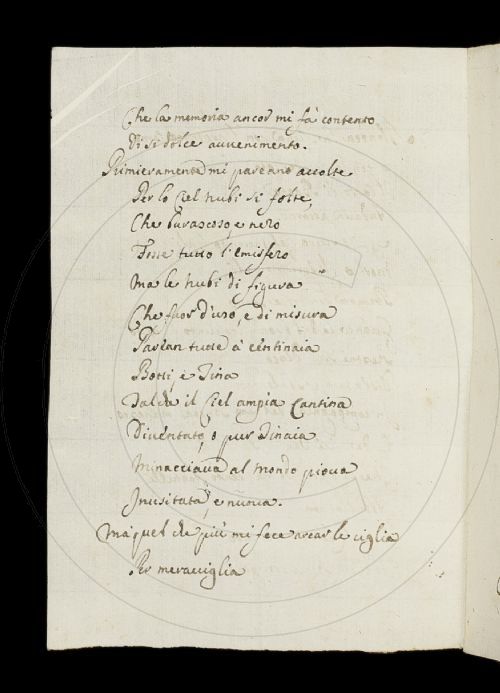 Che la memoria ancor mi fà contento
Di si dolce avvenimento.
Primieramente mi pareano accolte
Per lo Ciel nubi si folte,
Che burascoso, e nero
Fosse tutto l'emisfero
Ma le nubi di figura
Che fuor d'uso, e di misura
Parean tutte à centinaia
Botti, e Tina
Talda il Ciel ampia Cantina
Diventato, o pur Tinaia
Minacciava al mondo piova
Inusitata, e nuova.
Ma quel che più mi fece arcar le ciglia
Per meraviglia